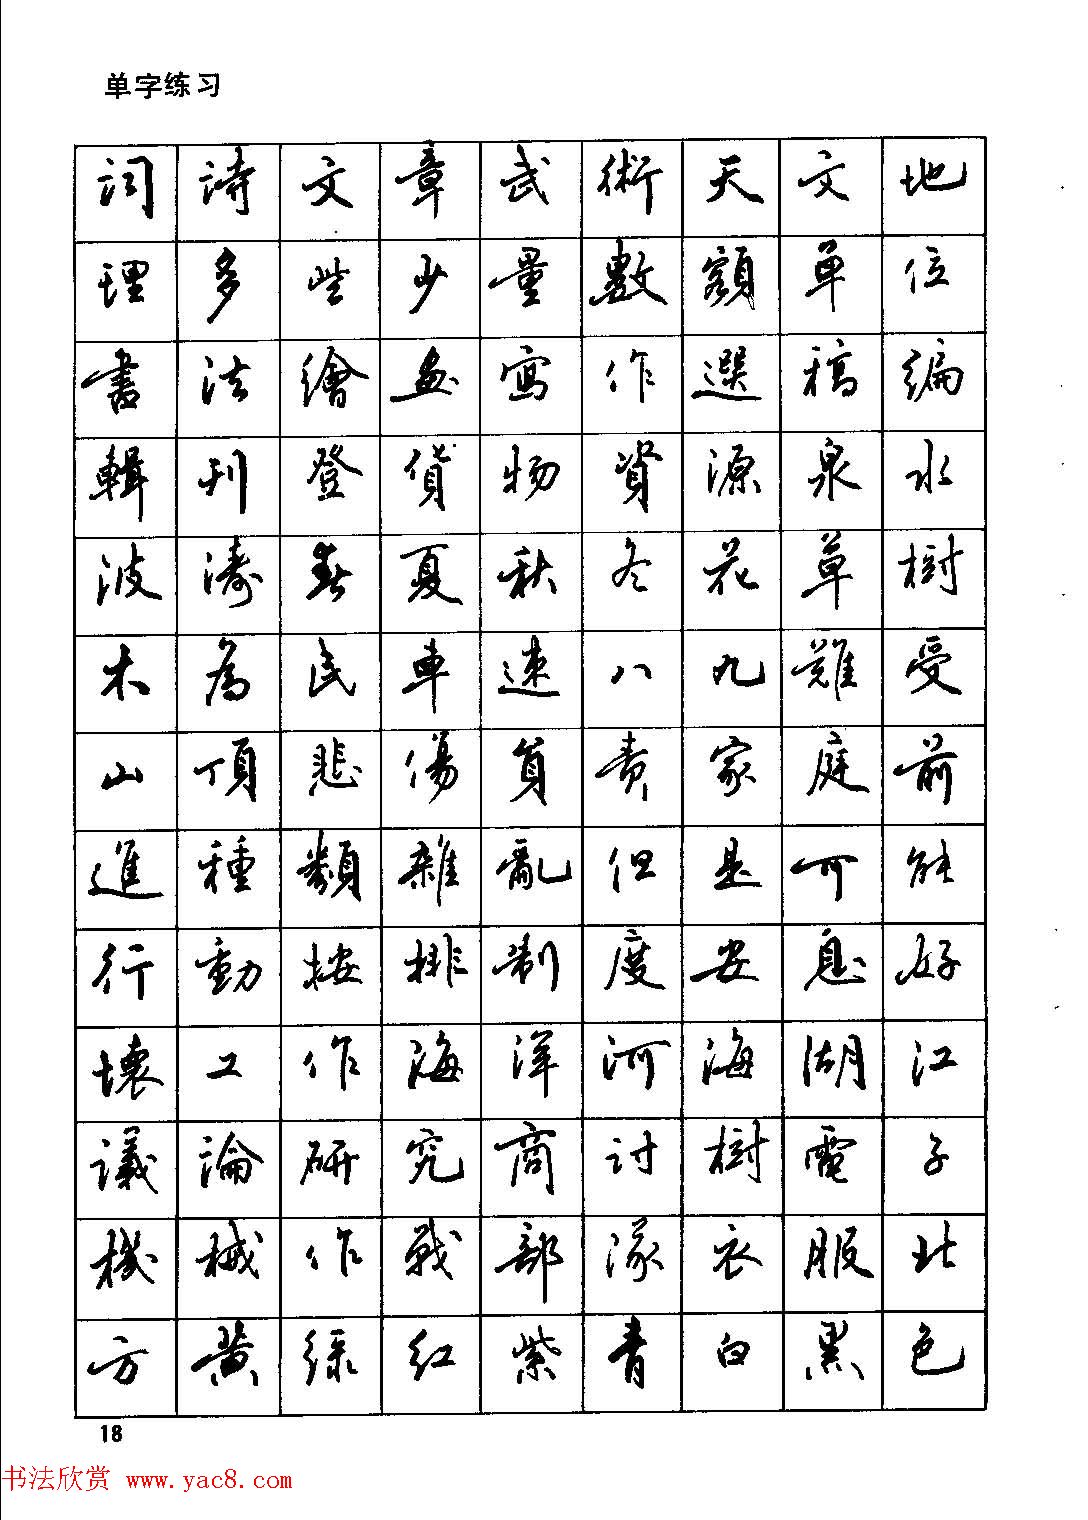 单字练习
詞詩文章武術天文地
理多些少量數額單位
書法繪畫寫作選稿編
輯刊登貨物資源泉水
波濤春夏秋冬花草樹
木為民車速八九難受
山頂悲傷負责家庭前
進種類雜亂但是可能
行動按排制度安息好
壞工作海洋河海湖江
議論研究商討樹電子
機械作戰部隊衣服北
方黃綠紅紫青白黑色
18
书法欣赏 www.yac8.com